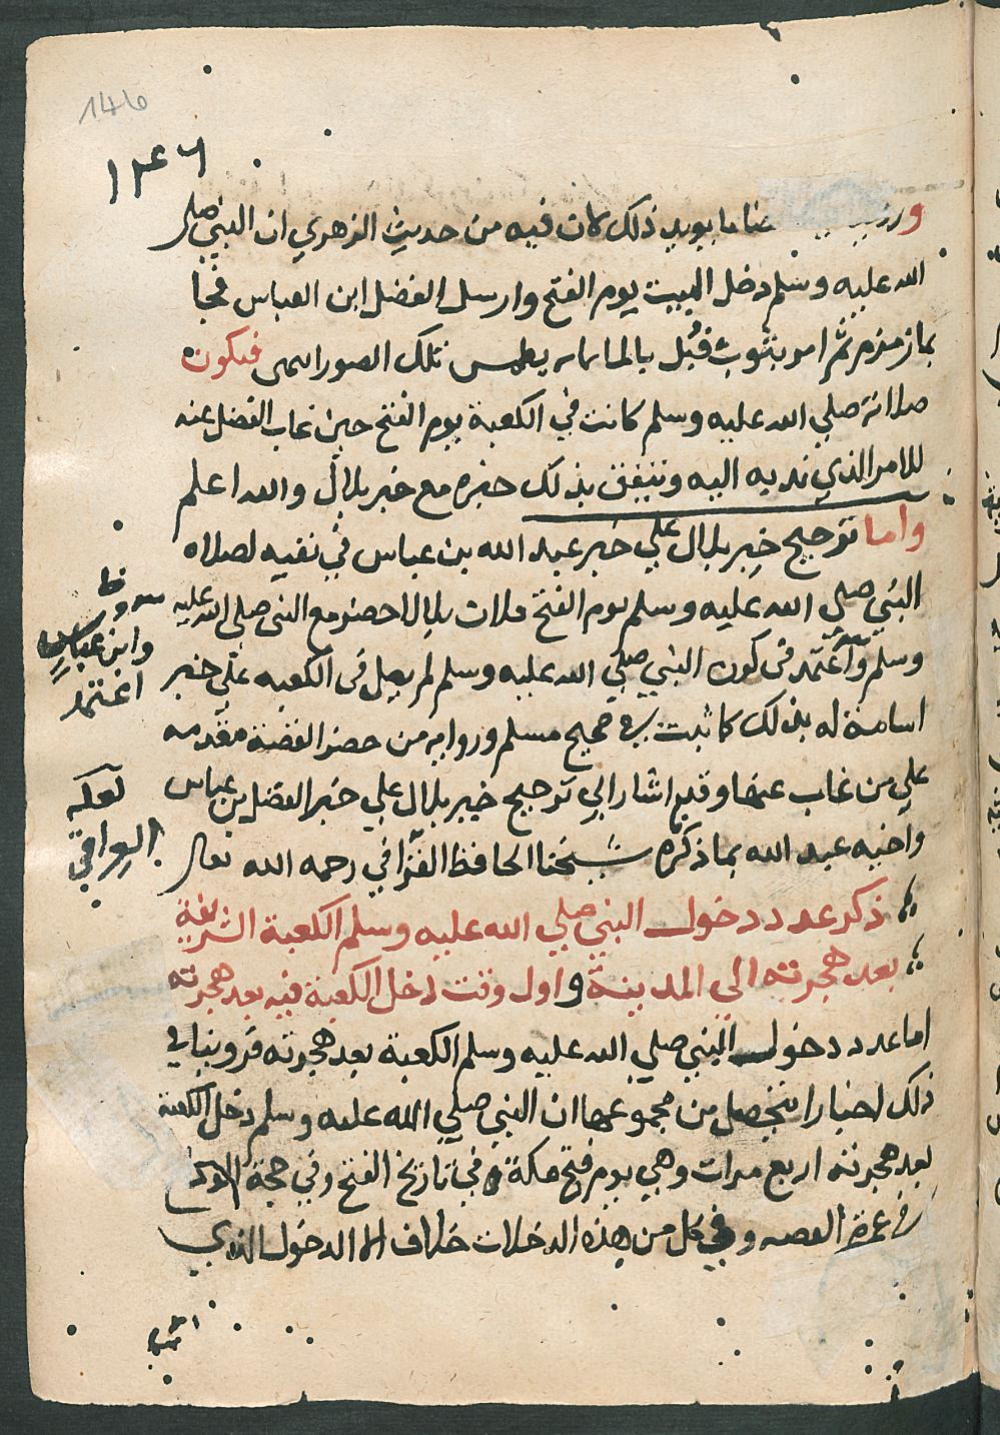 146
١٤٦
وروينا ما يويد ذلك لان فيه من حديث الزهري ان النبي صلى
الله عليه وسلم دخل البيت يوم الفتح وارسل الفضل ابن العباس فجا
بما زمزم ثم امر بثوب فبل بالما يطمس تلك الصور فيكون
صلاته صلي الله عليه وسلم كانت في الكعبة يوم الفتح حين غاب الفضل عنه
للامر الذي ندبه اليه ويتفق بذلك خبره مع خبر بلال والله اعلم
واما ترجيح خبر بلال علي خبر عبد الله بن عباس في نفيه لصلاه
النبي صلى الله عليه وسلم يوم الفتح فلان بلالا حضر مع النبي صلى الله عليه
وسلم واعتمد في كون النبي صلي الله عليه وسلم لم يصل في الكعبه علي خبر
اسامة له بذلك كما ثبت في صحيح مسلم ورواية من حضر القضية مقدمه
علي من غاب عنها وقد اشار الي ترجيح خبر بلال علي خبر الفضل بن عباس
واخيه عبد الله بما ذكره شيخنا الحافظ الغزافي رحمه الله تعالى
ذكر عدد دخول النبي صلي الله عليه وسلم الكعبة الشريفة
بعد هجرته الى المدينة واول وقت دخل الكعبة فيه بعد هجرته
اما عدد دخول النبي صلي الله عليه وسلم الكعبة بعد هجرته فروينا في
ذلك اخبارا يتحصل من مجموعها ان النبي صلي الله عليه وسلم دخل الكعبة
بعد هجرته اربع مرات وهي يوم فتح مكة وفي تاريخ الفتح وفي حجة الوداع
وفي عمرة القصيه وفي كل من هذه الدخلات خلاف الا الدخول الذي
سقط
وابن عباس
اعتمد
لعله
العراقي